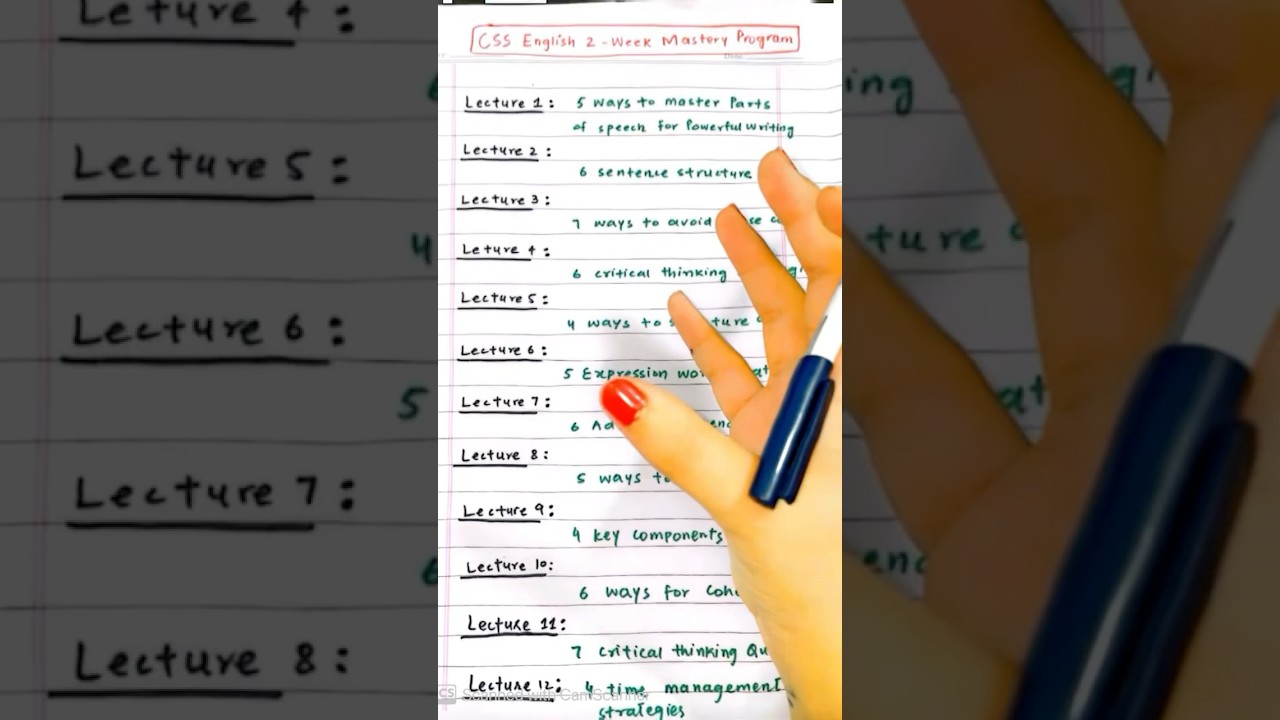 CSS English 2-Week Mastery Program
Lecture 1: 5 ways to master Parts
of speech for Powerful writing
Lecture 2:
6 sentence structure
Lecture 3:
7 ways to avoid
Leture 4:
6 critical thinking
Lecture 5:
4 ways to
Lecture 6:
5 Expression
Lecture 7:
6
Lecture 8:
5 ways
Lecture 9:
4 key components
Lecture 10:
6 ways for
Lecture 11:
7 critical thinking
Lecture 12: 4 time management
strategies
CS Scanned with CamScanner